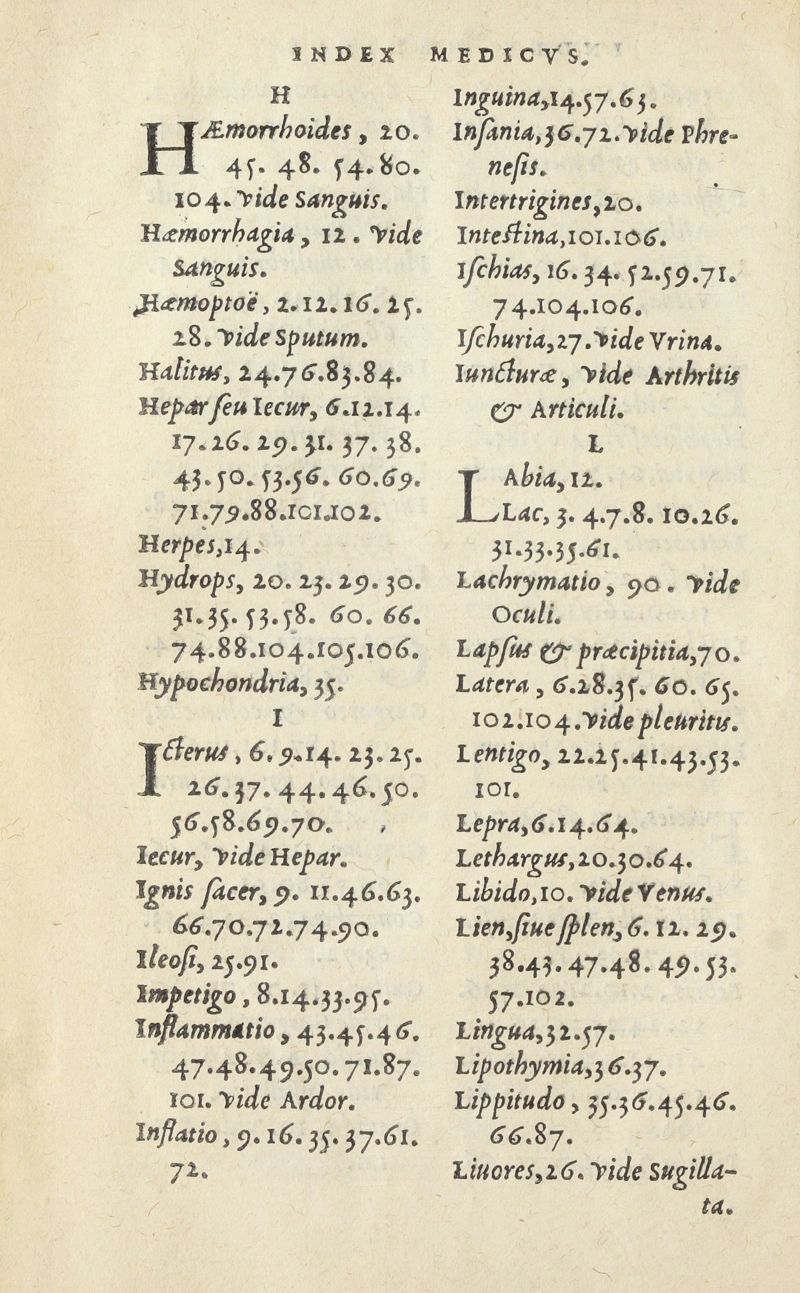 INDEX MEDICVS.
H
HÆmorrhoides, 20.
45. 48. 54. 80.
104. Vide Sanguis.
Hæmorrhagia, 12. Vide
Sanguis.
Hæmoptoë, 2.12.16. 25.
28. Vide Sputum.
Halitus, 24.76.83.84.
Hepar seu Iecur, 6.12.14.
17.26. 29. 31. 37. 38.
43. 50. 53.56. 60.69.
71.79.88.101.102.
Herpes,14.
Hydrops, 20. 23. 29. 30.
31.35. 53.58. 60. 66.
74.88.104.105.106.
Hypochondria, 35.
I
Icterus, 6.9.14. 23.25.
26.37. 44. 46. 50.
56.58.69.70.
Iecur, Vide Hepar.
Ignis sacer, 9. 11.46.63.
66.70.72.74.90.
Ileosi, 25.91.
Impetigo, 8.14.33.95.
Inflammatio, 43.45.46.
47.48.49.50.71.87.
101. Vide Ardor.
Inflatio, 9.16. 35. 37.61.
72.
Inguina,14.57.63.
Insania,36.72. Vide Phre-
nesis.
Intertrigines,20.
Intestina,101.106.
Ischias, 16. 34. 52.59.71.
74.104.106.
Ischuria,27. Vide Vrina.
Iuncturæ, Vide Arthritis
& Articuli.
L
LAbia,12.
Lac, 3. 4.7.8. 10.26.
31.33.35.61.
Lachrymatio, 90. Vide
Oculi.
Lapsus & præcipitia,70.
Latera, 6.28.35. 60. 65.
102.104. Vide pleuritis.
Lentigo, 22.25.41.43.53.
101.
Lepra,6.14.64.
Lethargus,20.30.64.
Libido,10. Vide Venus.
Lien,siue splen,6.12. 29.
38.43.47.48. 49.53.
57.102.
Lingua,32.57.
Lipothymia,36.37.
Lippitudo, 35.36.45.46.
66.87.
Liuores,26. Vide Sugilla-
ta.